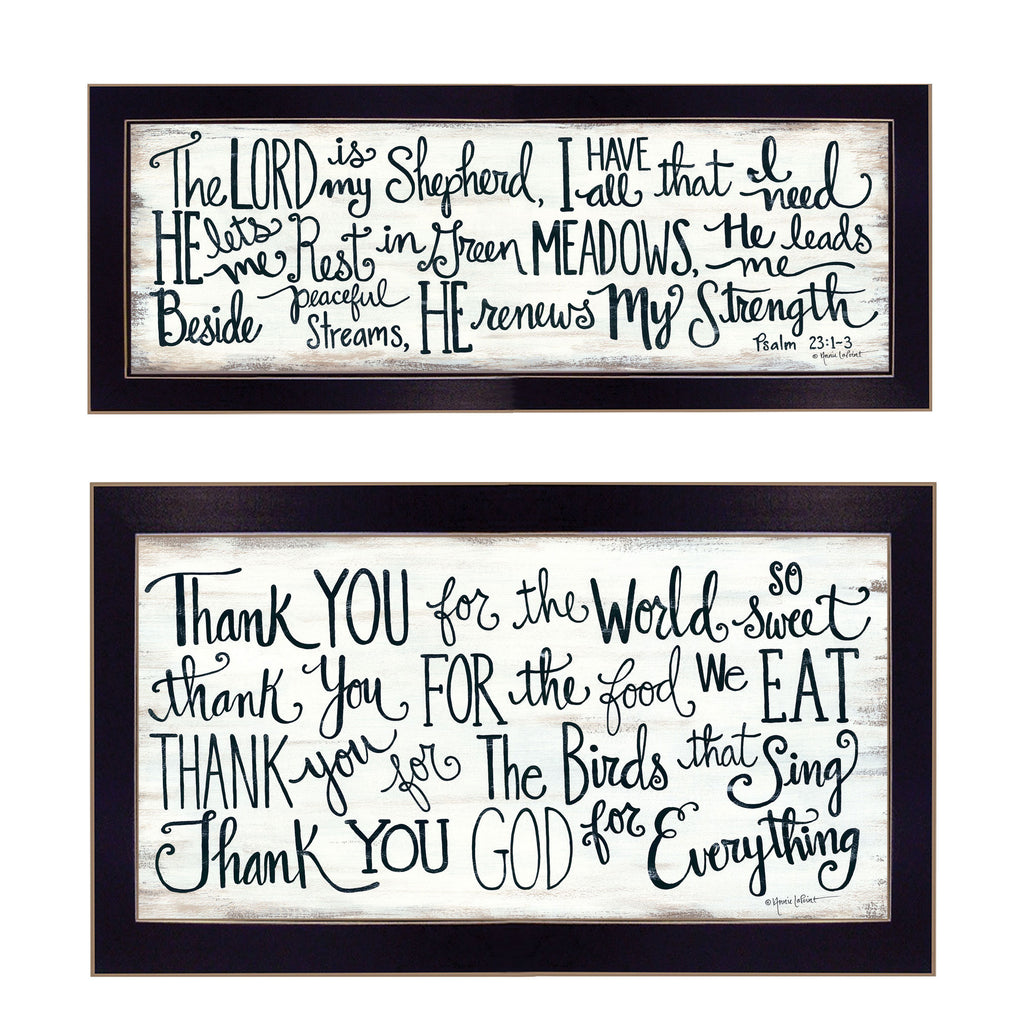 The LORD is my Shepherd, I HAVE all that I need
HE lets me Rest in Green MEADOWS, He leads me
Beside peaceful streams, HE renews My Strength
Psalm 23:1-3
© Annie LaPoint
Thank YOU for the World so sweet
thank you FOR the food We EAT
THANK you for The Birds that Sing
Thank YOU GOD for Everything
© Annie LaPoint